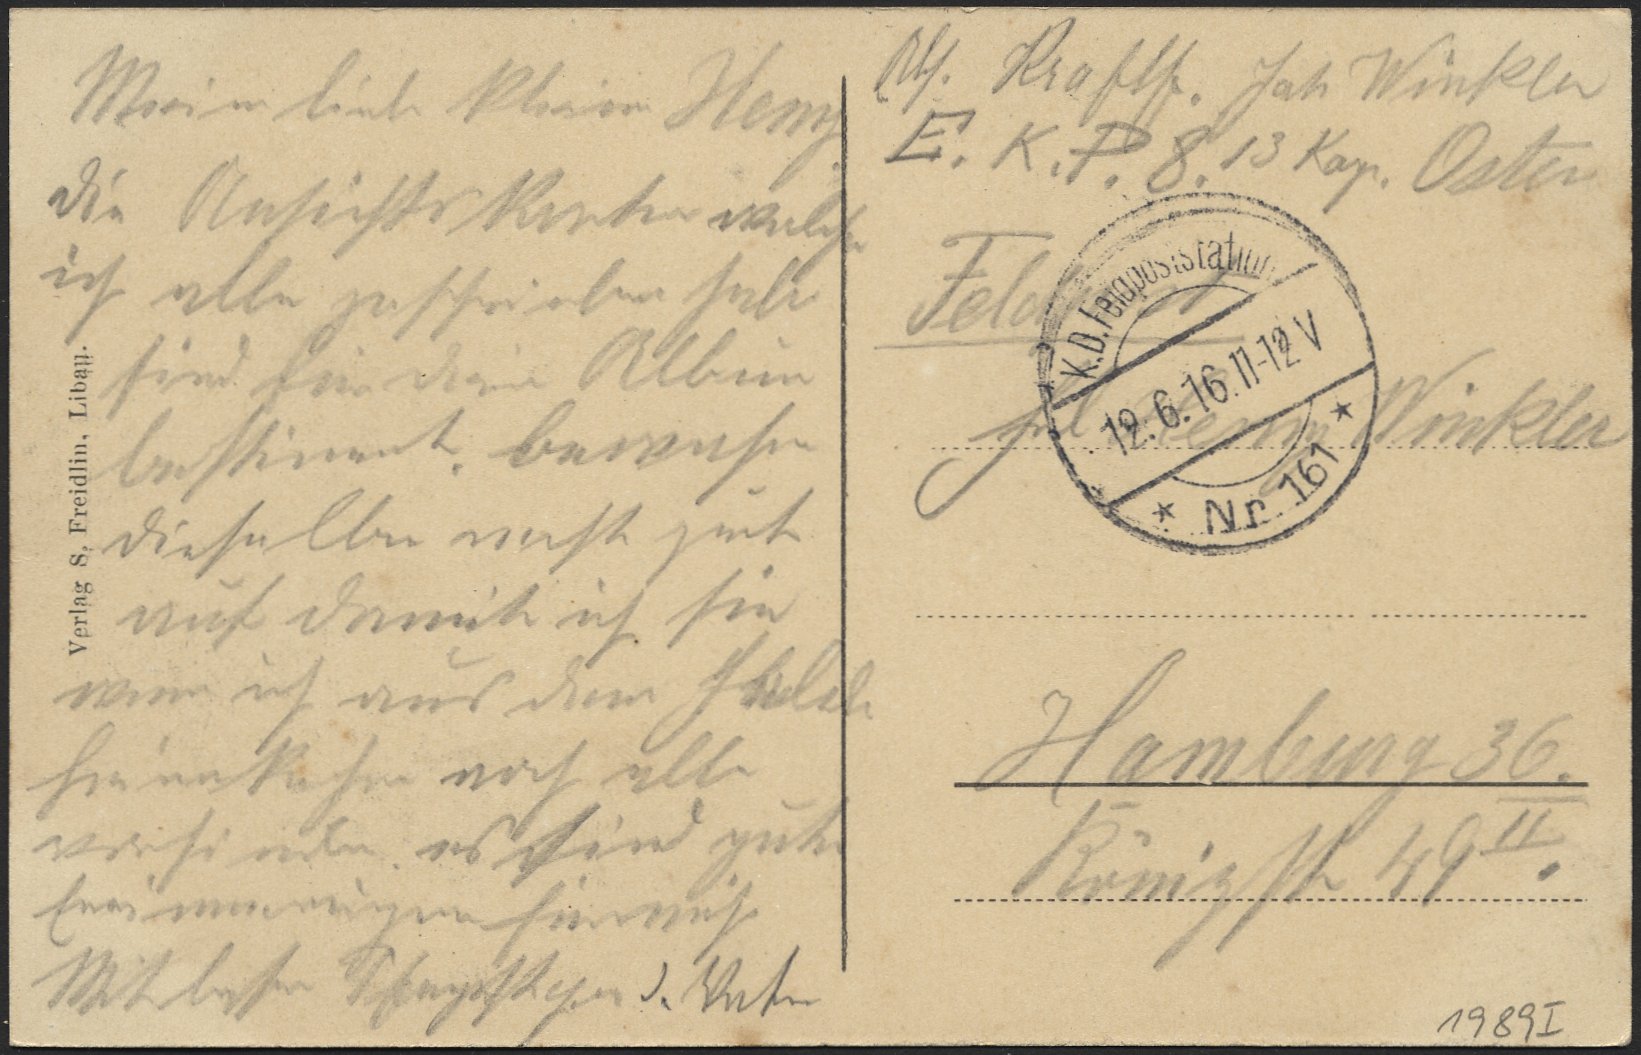 Meine liebe kleine Henny
die Ansichtskarten welche
ich alle geschrieben habe
sind für dein Album
bestimmt. bewahre
dieselben recht gut
auf damit ich sie
wenn ich aus dem Felde
heimkehre noch alle
vorfinde. es sind gute
Erinnerungen für mich
Mit besten d. Vater
Verlag S. Freidlin, Libau.
Abs. Kraftf. Joh Winkler
E. K. P. 8. 13 Kop. Osten
Feldpost
K.D. Feldpoststation
12.6.16.11-12 V
* Nr. 161 *
Frl Henny Winkler
Hamburg 36.
Königstr 49 II.
1989I